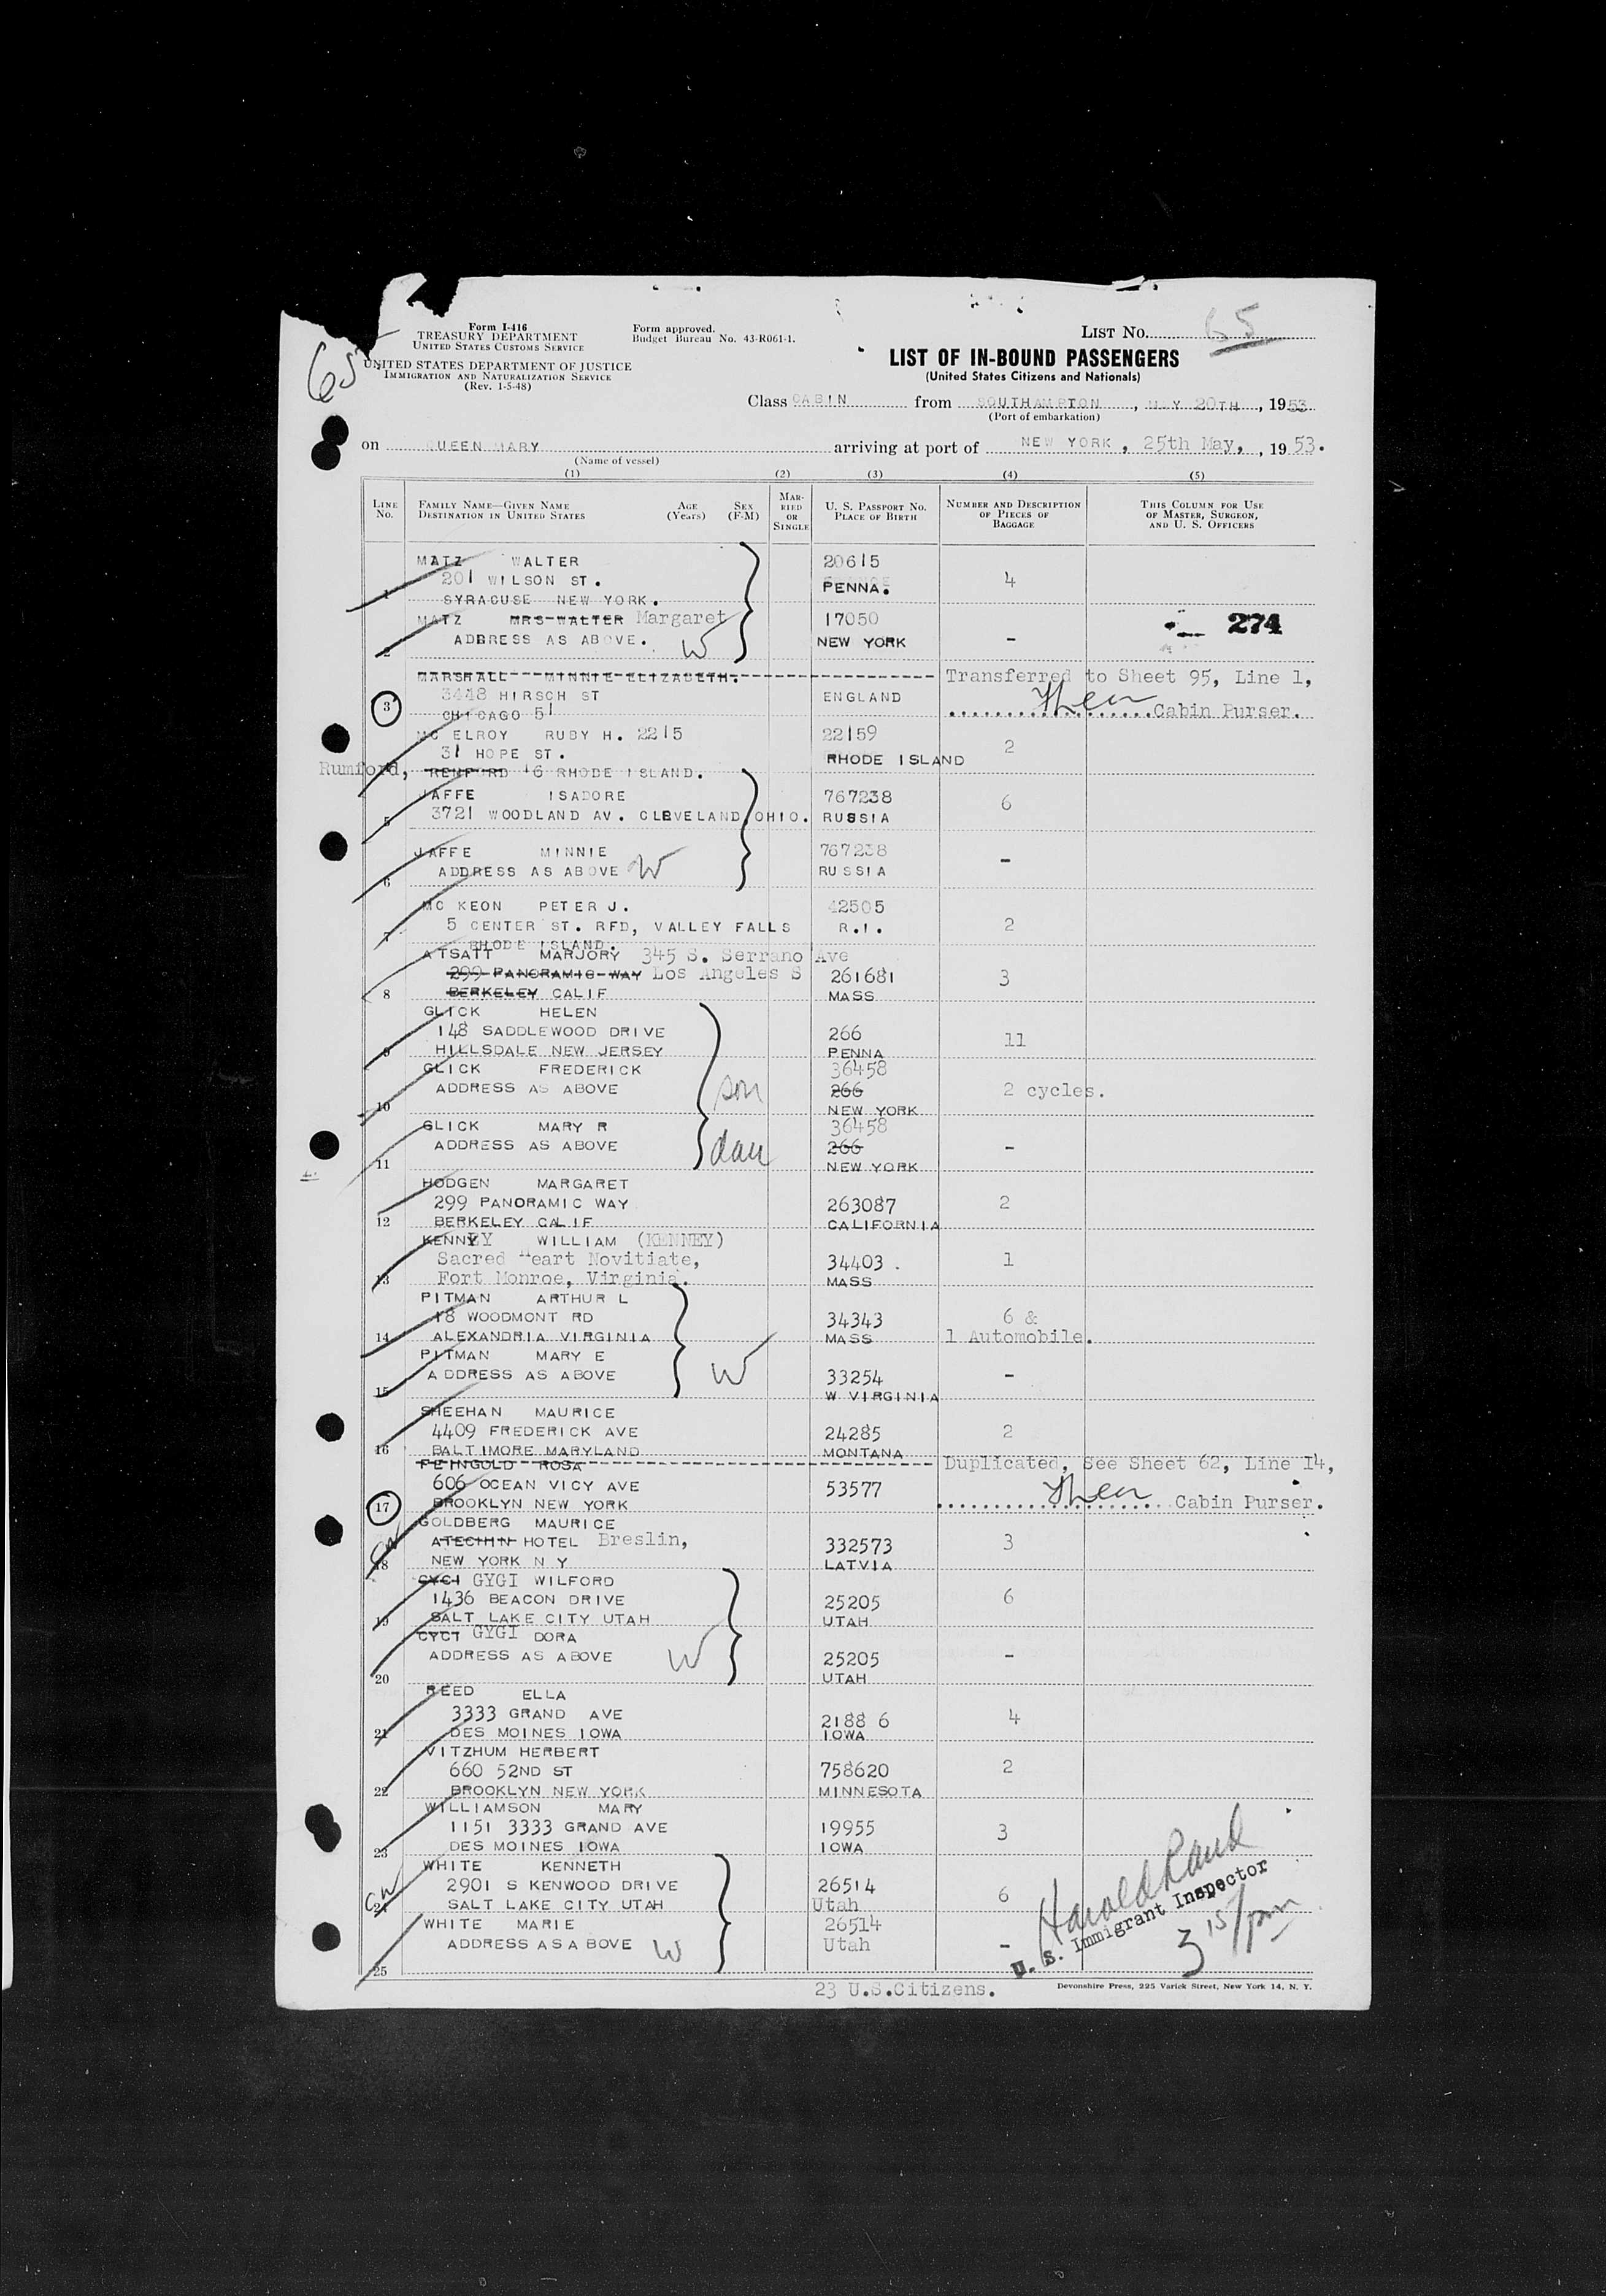 Form I-416
TREASURY DEPARTMENT
UNITED STATES CUSTOMS SERVICE
Form approved.
Budget Bureau No. 43-R061-1.
LIST No. 65
65
UNITED STATES DEPARTMENT OF JUSTICE
IMMIGRATION AND NATURALIZATION SERVICE
(Rev. 1-5-48)
LIST OF IN-BOUND PASSENGERS
(United States Citizens and Nationals)
Class CABIN from SOUTHAMPTON, MAY 20TH, 1953
(Port of embarkation)
on QUEEN MARY arriving at port of NEW YORK, 25th May, , 1953.
(Name of vessel)
(1) (2) (3) (4) (5)
LINE No. FAMILY NAME—GIVEN NAME DESTINATION IN UNITED STATES AGE (Years) SEX (F-M) MARRIED OR SINGLE U. S. PASSPORT No. PLACE OF BIRTH NUMBER AND DESCRIPTION OF PIECES OF BAGGAGE THIS COLUMN FOR USE OF MASTER, SURGEON, AND U. S. OFFICERS
MATZ WALTER 20615
201 WILSON ST. PENNA. 4
1 SYRACUSE NEW YORK.
MATZ MRS WALTER Margaret 17050 274
ADDRESS AS ABOVE. W NEW YORK -
2
MARSHALL MINNIE ELIZABETH. Transferred to Sheet 95, Line 1,
3448 HIRSCH ST ENGLAND
3 CHICAGO 51 Cabin Purser.
MC ELROY RUBY H. 2215 22159
31 HOPE ST. RHODE ISLAND 2
Rumford, REMFORD 16 RHODE ISLAND.
JAFFE ISADORE 767238 6
5 3721 WOODLAND AV. CLEVELAND OHIO. RUSSIA
JAFFE MINNIE 767238 -
6 ADDRESS AS ABOVE W RUSSIA
MC KEON PETER J. 42505
7 5 CENTER ST. RFD, VALLEY FALLS R.I. 2
RHODE ISLAND.
ATSATT MARJORY 345 S. Serrano Ave
299 PANORAMIC WAY Los Angeles S 261681 3
8 BERKELEY CALIF MASS
GLICK HELEN
148 SADDLEWOOD DRIVE 266 11
9 HILLSDALE NEW JERSEY PENNA
GLICK FREDERICK 36458
ADDRESS AS ABOVE son 266 2 cycles.
10 NEW YORK
GLICK MARY R 36458
ADDRESS AS ABOVE dau 266 -
11 NEW YORK
HODGEN MARGARET
299 PANORAMIC WAY 263087 2
12 BERKELEY CALIF CALIFORNIA
KENNEY WILLIAM (KENNEY)
Sacred Heart Novitiate, 34403 . 1
13 Fort Monroe, Virginia. MASS
PITMAN ARTHUR L
18 WOODMONT RD 34343 6 &
14 ALEXANDRIA VIRGINIA MASS 1 Automobile.
PITMAN MARY E
ADDRESS AS ABOVE W 33254 -
15 W VIRGINIA
SHEEHAN MAURICE
4409 FREDERICK AVE 24285 2
16 BALTIMORE MARYLAND MONTANA
FEINGOLD ROSA Duplicated, See Sheet 62, Line 14,
606 OCEAN VICY AVE 53577
17 BROOKLYN NEW YORK Cabin Purser.
GOLDBERG MAURICE
HOTEL Breslin, 332573 3
18 NEW YORK N Y LATVIA
GYCI GYGI WILFORD
1436 BEACON DRIVE 25205 6
19 SALT LAKE CITY UTAH UTAH
GYCI GYGI DORA
ADDRESS AS ABOVE W 25205 -
20 UTAH
REED ELLA
3333 GRAND AVE 2188 6 4
21 DES MOINES IOWA IOWA
VITZHUM HERBERT
660 52ND ST 758620 2
22 BROOKLYN NEW YORK MINNESOTA
WILLIAMSON MARY
1151 3333 GRAND AVE 19955 3
23 DES MOINES IOWA IOWA
WHITE KENNETH
2901 S KENWOOD DRIVE 26514 6
24 SALT LAKE CITY UTAH Utah
WHITE MARIE 26514
ADDRESS AS ABOVE W Utah -
25
Harold Rand
U. S. Immigrant Inspector
3 15/pm
23 U.S.Citizens.
Devonshire Press, 225 Varick Street, New York 14, N. Y.